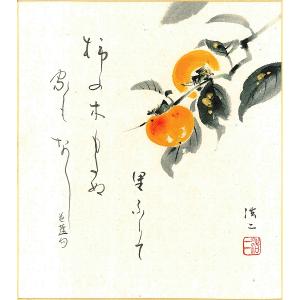 里ふりて
柿の木もたぬ
家もなし
芭蕉句